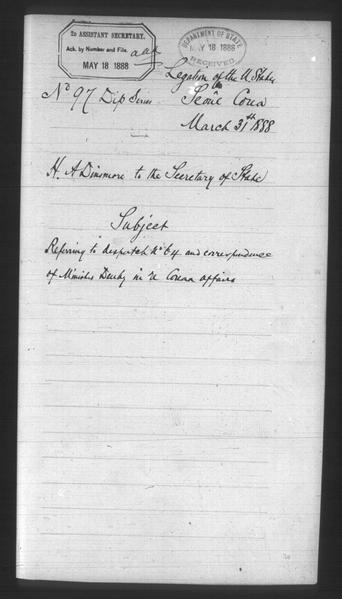 2D ASSISTANT SECRETARY.
Ack. by Number and File.
MAY 18 1888
DEPARTMENT OF STATE
MAY 18 1888
RECEIVED
Legation of the U States
No 97 Dip Series
Seoul Corea
March 31st 1888
H. A Dinsmore to the Secretary of State
Subject
Referring to despatch No 64 and correspondence
of Minister Denby in re Corean affairs